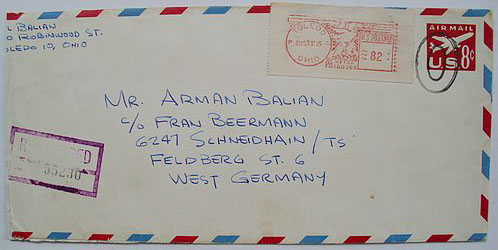 L BALIAN
O ROBINWOOD ST.
OLEDO 10, OHIO
TOLEDO
OHIO
U.S. POSTAGE
82
AIR MAIL
U.S. 8¢
MR. ARMAN BALIAN
c/o FRAN BEERMANN
6247 SCHNEIDHAIN / TS
FELDBERG ST. 6
WEST GERMANY